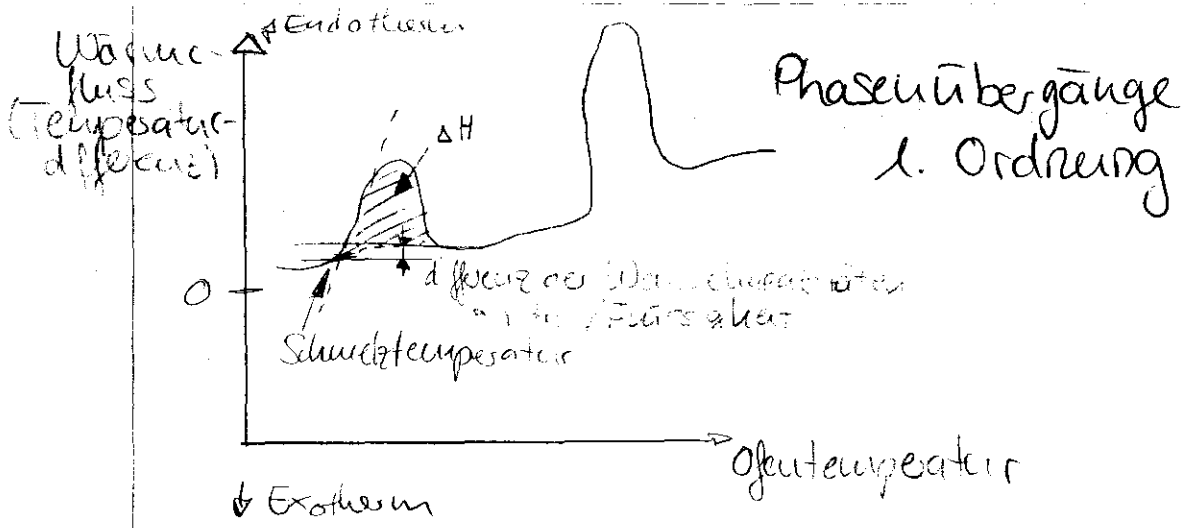 Endotherm
Wärme-
fluss
(Temperatur-
differenz)
Phasenübergänge
1. Ordnung
ΔH
0
differenz der Wärmekapazitäten
Schmelztemperatur
Ofentemperatur
Exotherm